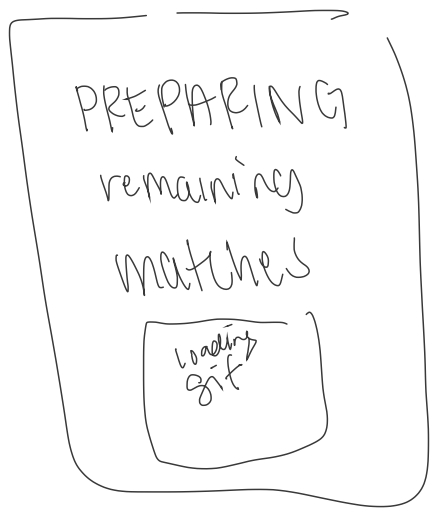 PREPARING
remaining
matches
loading
gif